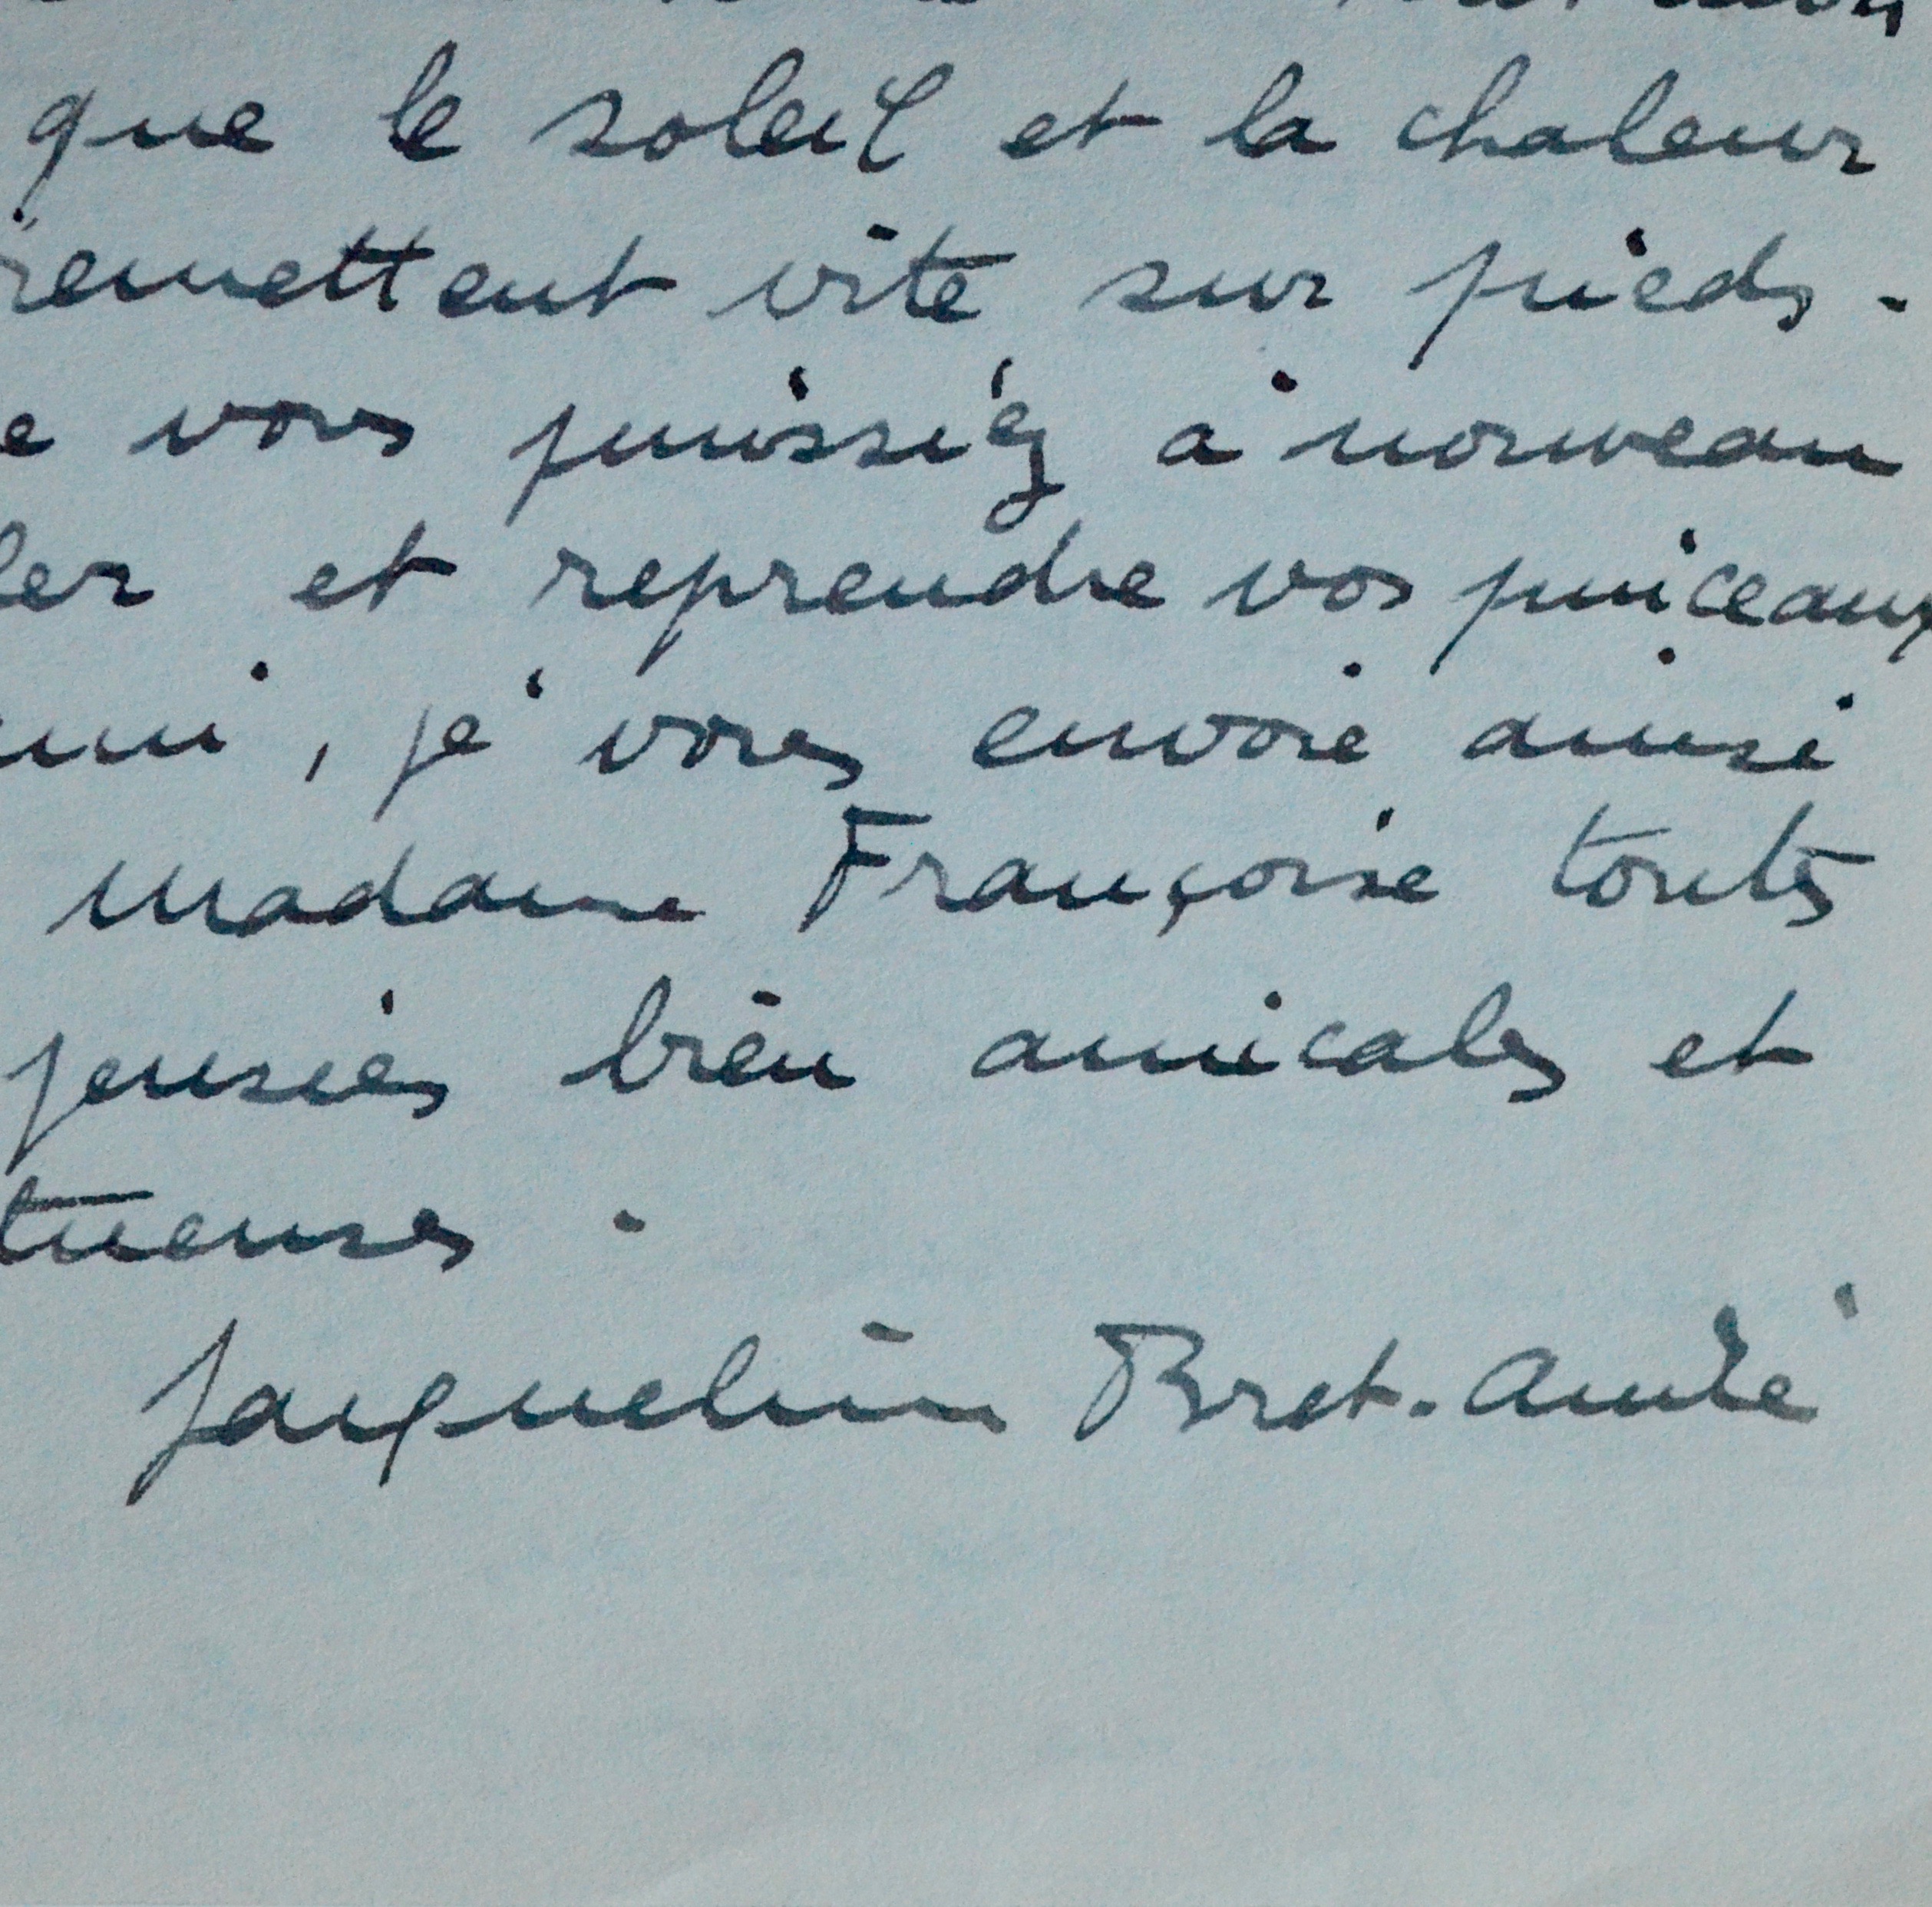 que le soleil et la chaleur
remettent vite sur pieds.
e vous puissiez à nouveau
ler et reprendre vos pinceaux
mi, je vous envoie ainsi
madame Françoise toutes
pensées bien amicales et
tueuses.
Jacqueline Bret-André